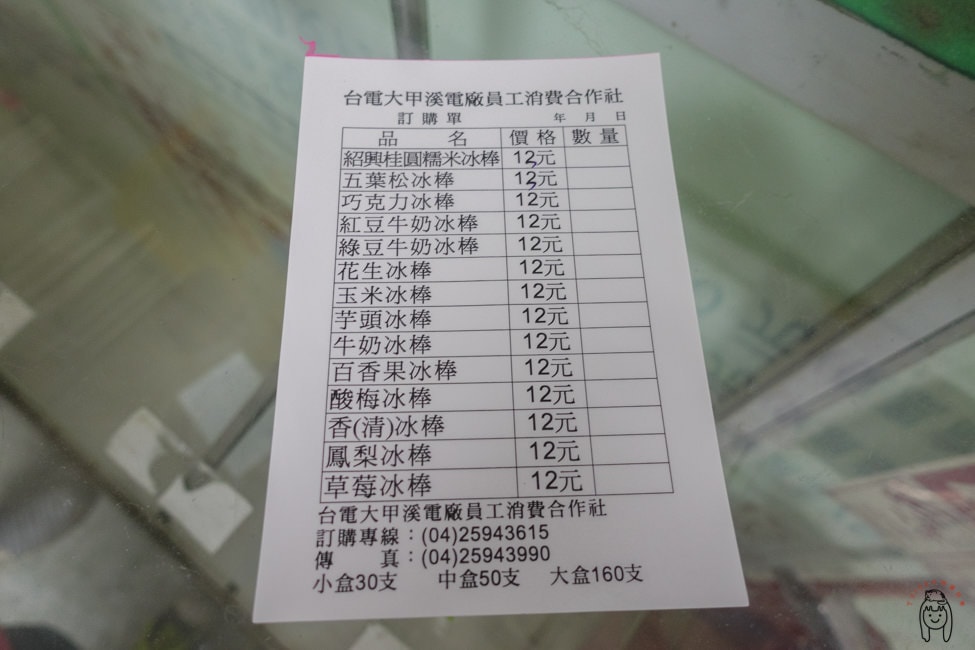 台電大甲溪電廠員工消費合作社
訂購單 年 月 日
品 名 價格 數量
紹興桂圓糯米冰棒 12元
五葉松冰棒 12元
巧克力冰棒 12元
紅豆牛奶冰棒 12元
綠豆牛奶冰棒 12元
花生冰棒 12元
玉米冰棒 12元
芋頭冰棒 12元
牛奶冰棒 12元
百香果冰棒 12元
酸梅冰棒 12元
香(清)冰棒 12元
鳳梨冰棒 12元
草莓冰棒 12元
台電大甲溪電廠員工消費合作社
訂購專線：(04)25943615
傳 真：(04)25943990
小盒30支 中盒50支 大盒160支